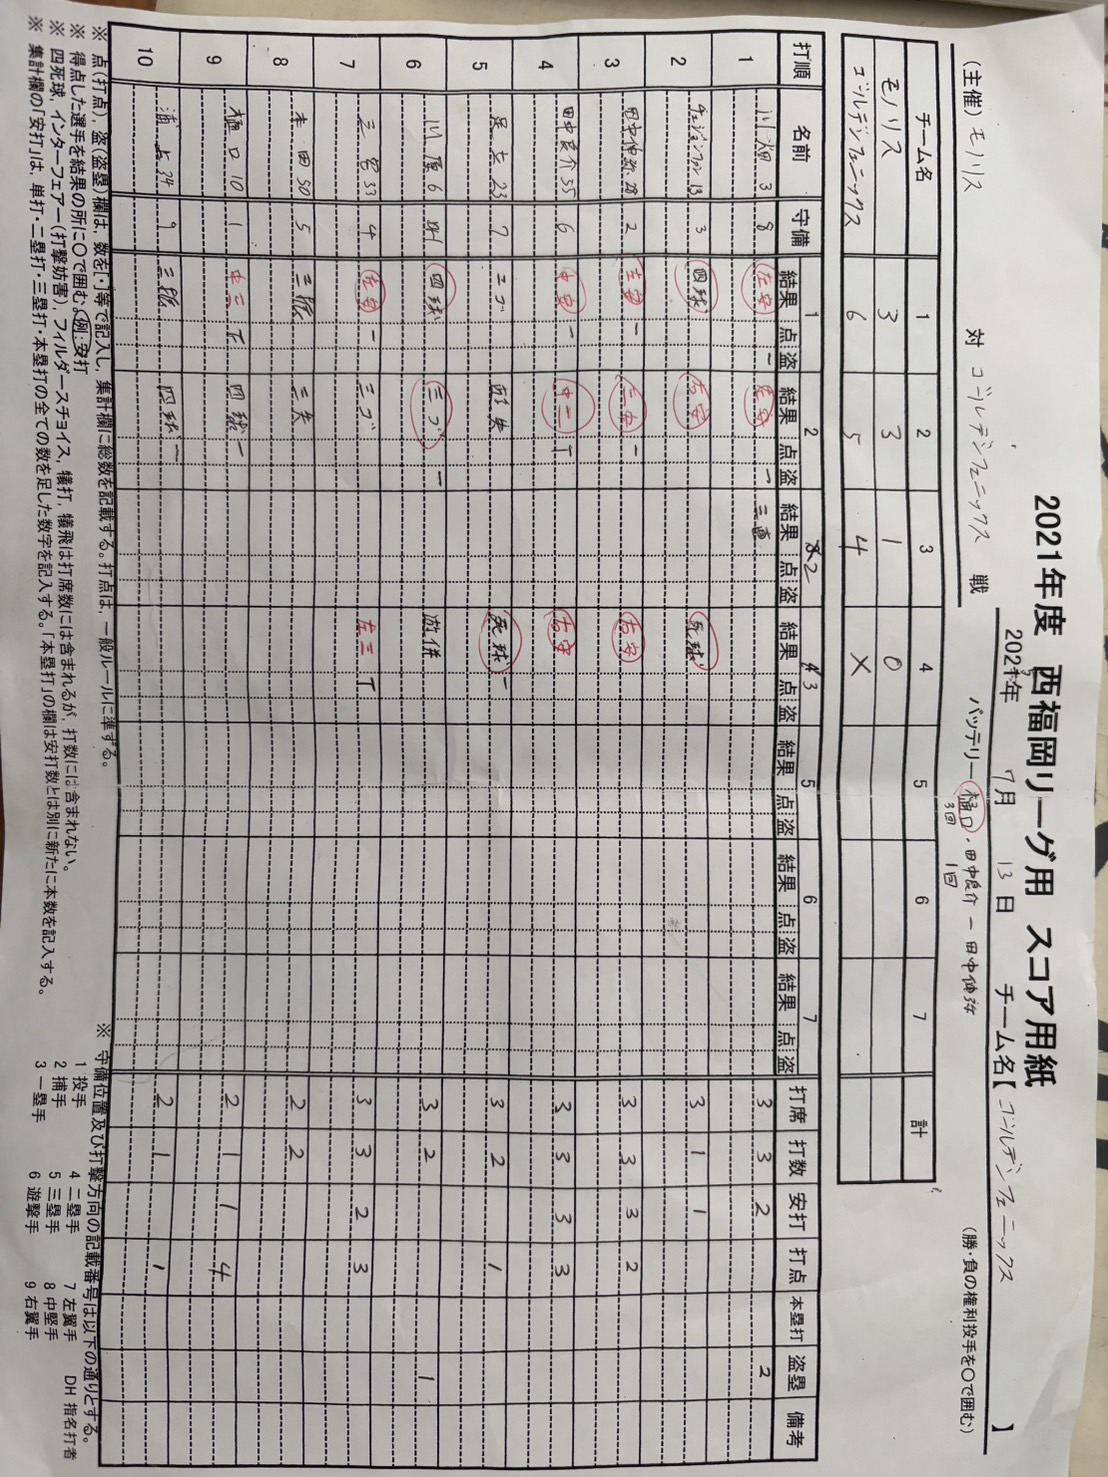 2021年度 西福岡リーグ用 スコア用紙
2021年 7月 13日 チーム名【ゴールデンフェニックス】
(主催) モノリス 対 ゴールデンフェニックス 戦
バッテリー 樋口・田中良介 ー 田中伸弥
3回 1回
(勝・負の権利投手を○で囲む)
チーム名 1 2 3 4 5 6 7 計
モノリス 3 3 1 0
ゴールデンフェニックス 6 5 4 X
打順 名前 守備 1 2 2 3 5 6 7 打席 打数 安打 打点 本塁打 盗塁 備考
結果 点 盗 結果 点 盗 結果 点 盗 結果 点 盗 結果 点 盗 結果 点 盗 結果 点 盗
1 川畑 3 8 左安 左安 三直 3 3 2 2
2 13 3 四球 右安 死球 3 1 1
3 田中伸弥 28 2 左安 三安 右安 3 3 3 2
4 田中良介 55 6 中安 中二 右安 3 3 3 3
5 足立 23 7 三ゴ 失 死球 3 2 1
6 川原 6 DH 四球 三ゴ 遊併 3 2 1
7 三宮 33 4 左安 三ゴ 左三 3 3 2 3
8 本田 50 5 三振 三失 2 2
9 樋口 10 1 中三 四球 2 1 1 4
10 浦上 34 9 三振 四球 2 1 1
※ 点(打点)、盗(盗塁)欄は、数を[・]等で記入し、集計欄に総数を記載する。打点は、一般ルールに準ずる。
※ 得点した選手を結果の所に○で囲む(例:安打)
※ 四死球、インターフェアー(打撃妨害)、フィルダースチョイス、犠打、犠飛は打席数には含まれるが、打数には含まれない。
※ 集計欄の「安打」は、単打・二塁打・三塁打・本塁打の全ての数を足した数字を記入する。「本塁打」の欄は安打数とは別に新たに本数を記入する。
※ 守備位置及び打撃方向の記載番号は以下の通りとする。
1 投手 4 二塁手 7 左翼手 DH 指名打者
2 捕手 5 三塁手 8 中堅手
3 一塁手 6 遊撃手 9 右翼手